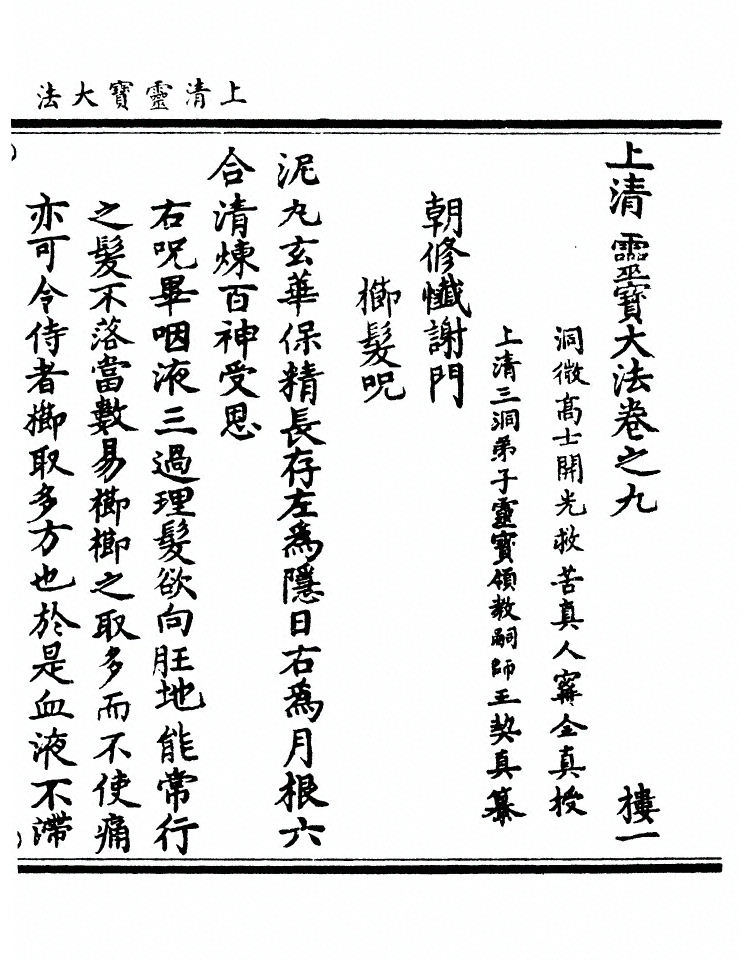 上清靈寶大法
上清靈寶大法卷之九 樓一
洞微高士開光救苦真人甯全真授
上清三洞弟子靈寶領教嗣師王契真纂
朝修懺謝門
櫛髮呪
泥丸玄華保精長存左為隱日右為月根六
合清煉百神受恩
右呪畢咽液三過理髮欲向旺地能常行
之髮不落當數易櫛櫛之取多而不使痛
亦可令侍者櫛取多方也於是血液不滯